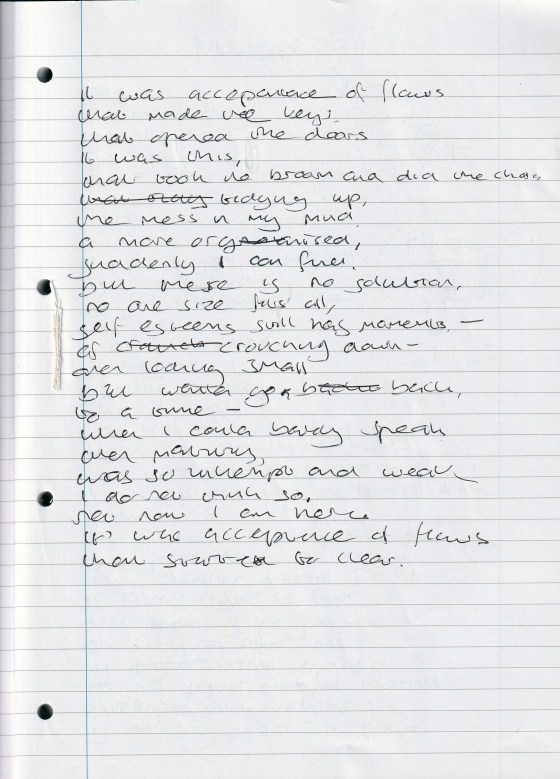 It was acceptance of flaws
that made the keys.
that opened the doors
it was this,
that took the broom and did the chores
tidying up,
the mess in my mind
a more organised,
suddenly I can find.
but there is no solution,
no one size fits all,
self esteems still has moments —
of crouching down —
over looking small
but would go back,
to a time —
when I could barely speak
over
was so and weak
I do not think so,
not now I am here
it was acceptance of flaws
that to clear.